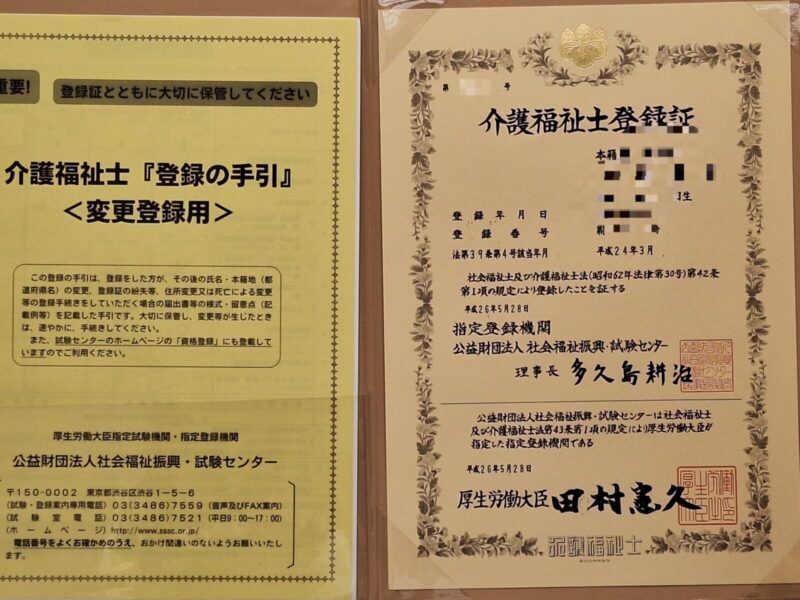 重要!
登録証とともに大切に保管してください
介護福祉士『登録の手引』
＜変更登録用＞
この登録の手引は、登録をした方が、その後の氏名・本籍地（都
道府県名）の変更、登録証の紛失等、住所変更又は死亡による変更
等の登録手続きをしていただく場合の届出書等の様式・留意点（記
載例等）を記載した手引です。大切に保管し、変更等が生じたとき
は、速やかに、手続きしてください。
また、試験センターのホームページの「資格登録」にも登載して
いますのでご利用ください。
厚生労働大臣指定試験機関・指定登録機関
公益財団法人社会福祉振興・試験センター
〒150-0002 東京都渋谷区渋谷1-5-6
（試験・登録案内専用電話）03(3486)7559（音声及びFAX案内）
（試験室電話）03(3486)7521（平日9：00～17：00）
（ホームページ）http://www.sssc.or.jp/
電話番号をよくお確かめのうえ、おかけ間違いのないようお願いいたしま
す。
第 号
介護福祉士登録証
本籍
生
登録年月日
登録番号 第 号
法第39条第4号該当年月 平成24年3月
社会福祉士及び介護福祉士法(昭和62年法律第30号)第42条
第1項の規定により登録したことを証する
平成26年5月28日
指定登録機関
公益財団法人 社会福祉振興・試験センター
理事長 多久島耕治
公益財団法人社会福祉振興・試験センターは社会福祉士
及び介護福祉士法第43条第1項の規定により厚生労働大臣が
指定した指定登録機関である
平成26年5月28日
厚生労働大臣 田村憲久
厚生労働大臣印
介護福祉士